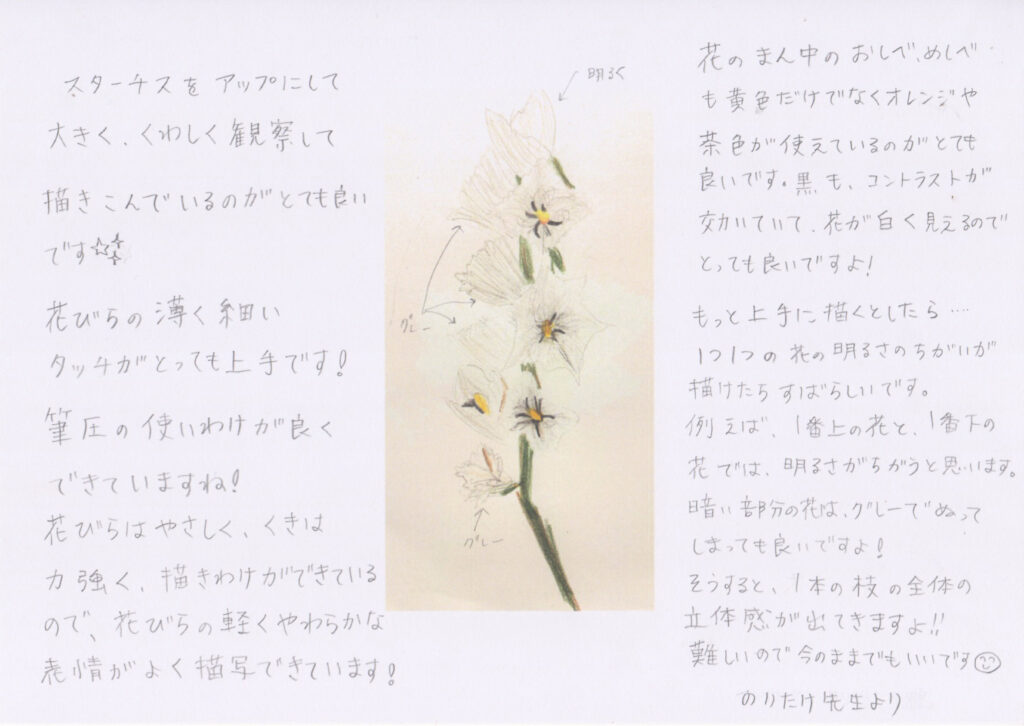 スターチスを アップにして
大きく、くわしく観察して
描きこんでいるのがとても良い
です
花びらの薄く細い
タッチがとっても上手です!
筆圧の使いわけが良く
できていますね!
花びらはやさしく、くきは
力強く、描きわけができている
ので、花びらの軽くやわらかな
表情がよく描写できています!
明るく
グレー
グレー
花のまん中のおしべ、めしべ
も黄色だけでなくオレンジや
茶色が使えているのがとても
良いです。黒も、コントラストが
効いていて、花が白く見えるので
とっても良いですよ!
もっと上手に描くとしたら…
1つ1つの花の明るさのちがいが
描けたらすばらしいです。
例えば、1番上の花と、1番下の
花では、明るさがちがうと思います。
暗い部分の花は、グレーでぬって
しまっても良いですよ!
そうすると、1本の枝の全体の
立体感が出てきますよ!!
難しいので今のままでもいいです
のりたけ先生より